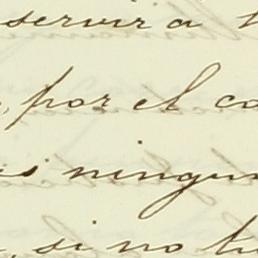 servir a
, por el co
is ningun
, si no tu